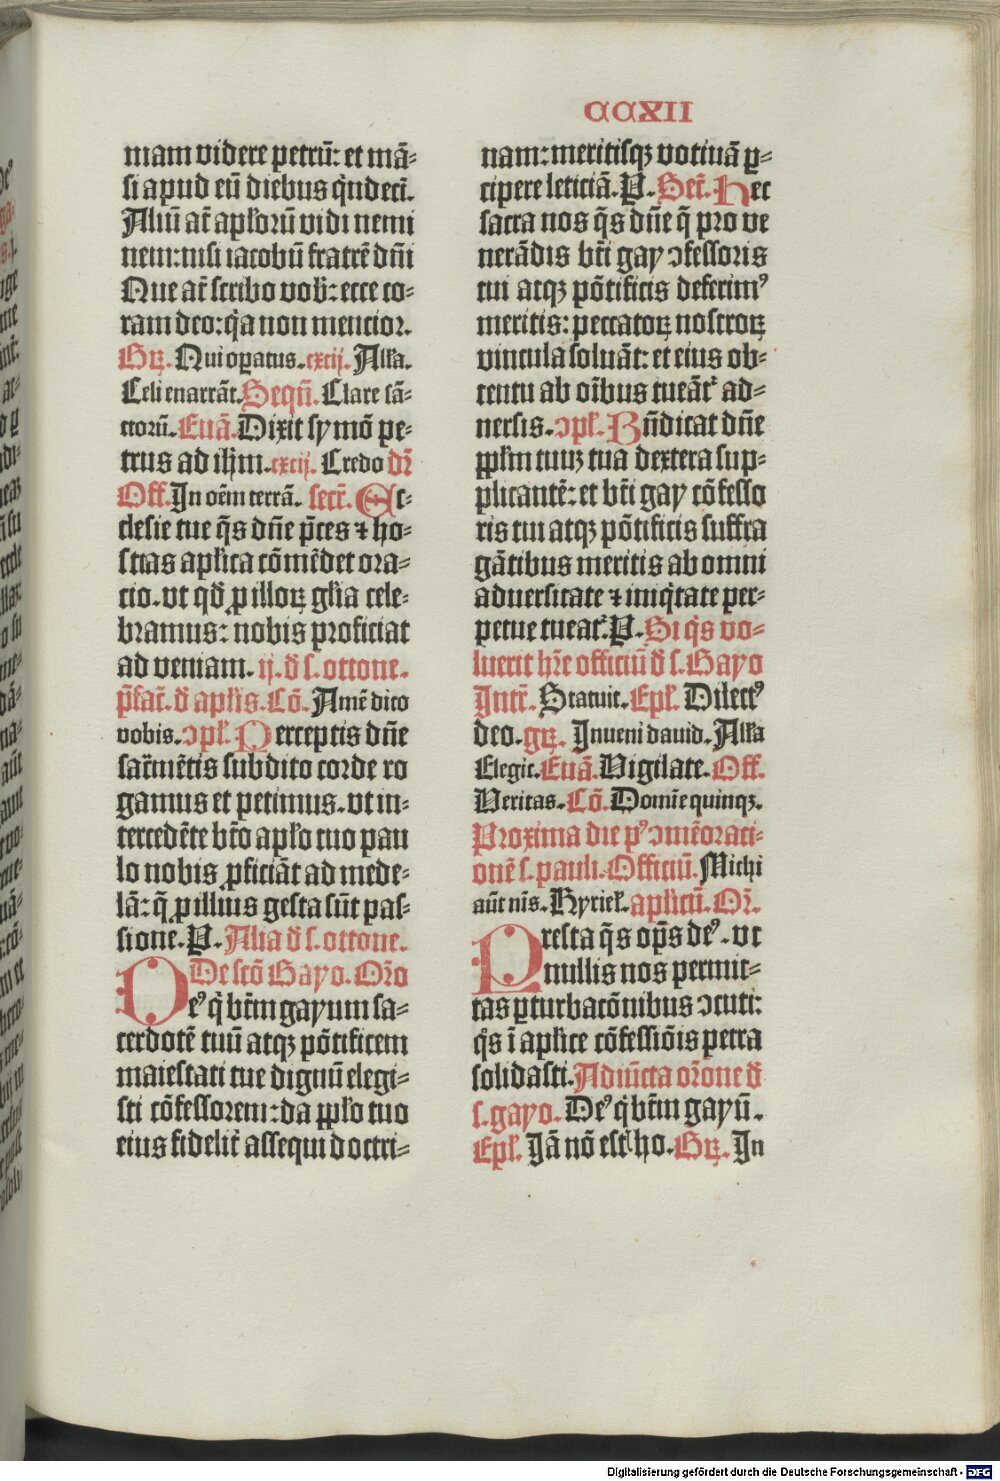 CCXII
mam videre petrū: et mā⸗
si apud eū diebus q̇ndecī.
Aliū at̄ apl̄orū vidi nemi
nem: nisi iacobū fratrē dn̄i
Que at̄ scribo vob̄: ecce co⸗
ram deo: q̇a non mencior.
Gꝝ. Qui opatus. cxcij. All̄a.
Celi enarrāt. Seqū. Clare sā⸗
ctorū. Euā. Dixit symō pe⸗
trus ad ih̄m. cxcij. Credo dr̄
Off. In oēm terrā. secr̄. Ec⸗
clesie tue q̄s dn̄e p̄ces ⁊ ho⸗
stias apl̄ica cōmēdet ora⸗
cio. vt qd̄ ꝓ illoꝝ gl̄ia cele⸗
bramus: nobis proficiat
ad veniam. ij. d̄ s. ottone.
p̄fat̄. d̄ apl̄is. Cō. Amē dico
vobis. ↄpl̄. Perceptis dn̄e
sacr̄mētis subdito corde ro
gamus et petimus. vt in⸗
tercedēte bt̄o apl̄o tuo pau
lo nobis ꝓficiāt ad mede⸗
lā: q̄ ꝓ illius gesta sūt pas⸗
sione. P. Alia d̄ s. ottone.
De sctō Gayo. Or̄o
Deꝰ q̇ bt̄m gayum sa⸗
cerdotē tuū atqꝫ pōtificem
maiestati tue dignū elegi⸗
sti cōfessorem: da ppl̄o tuo
eius fidelit̄ assequi doctri⸗
nam: meritisqꝫ votiuā ꝑ⸗
cipere leticiā. P. Secr̄. Hec
sacra nos q̄s dn̄e q̄ pro ve
nerādis bt̄i gay ↄfessoris
tui atqꝫ pōtificis deferimꝰ
meritis: peccatoꝝ nostroꝝ
vincula soluāt: et eius ob⸗
tentu ab oībus tueāt᷑ ad⸗
uersis. ↄpl̄. Bn̄dicat dn̄e
ppl̄m tuuꝫ tua dextera sup⸗
plicantē: et bt̄i gay cōfesso
ris tui atqꝫ pōtificis suffra
gātibus meritis ab omni
aduersitate ⁊ iniq̇tate per⸗
petue tueat᷑. P. Si q̇s vo⸗
luerit hr̄e officiū d̄ s. Gayo
Intr̄. Statuit. Epl̄. Dilectꝰ
deo. gꝝ. Inueni dauid. All̄a
Elegit. Euā. Vigilate. Off.
Veritas. Cō. Domīe quinqꝫ.
Proxima die pꝰ ↄmēoraci⸗
onē s. pauli. Officiū. Michi
aūt nīs. Kyriel̄. apl̄icū. Or̄.
Presta q̄s op̄s deꝰ. vt
nullis nos permit⸗
tas ꝑturbacōnibus ↄcuti:
q̇s ī apl̄ice cōfessiōis petra
solidasti. Adiūcta or̄one d̄
s. gayo. Deꝰ q̇ bt̄m gayū.
Epl̄. Iā nō estꝭ ho. Gꝝ. In
Digitalisierung gefördert durch die Deutsche Forschungsgemeinschaft - DFG